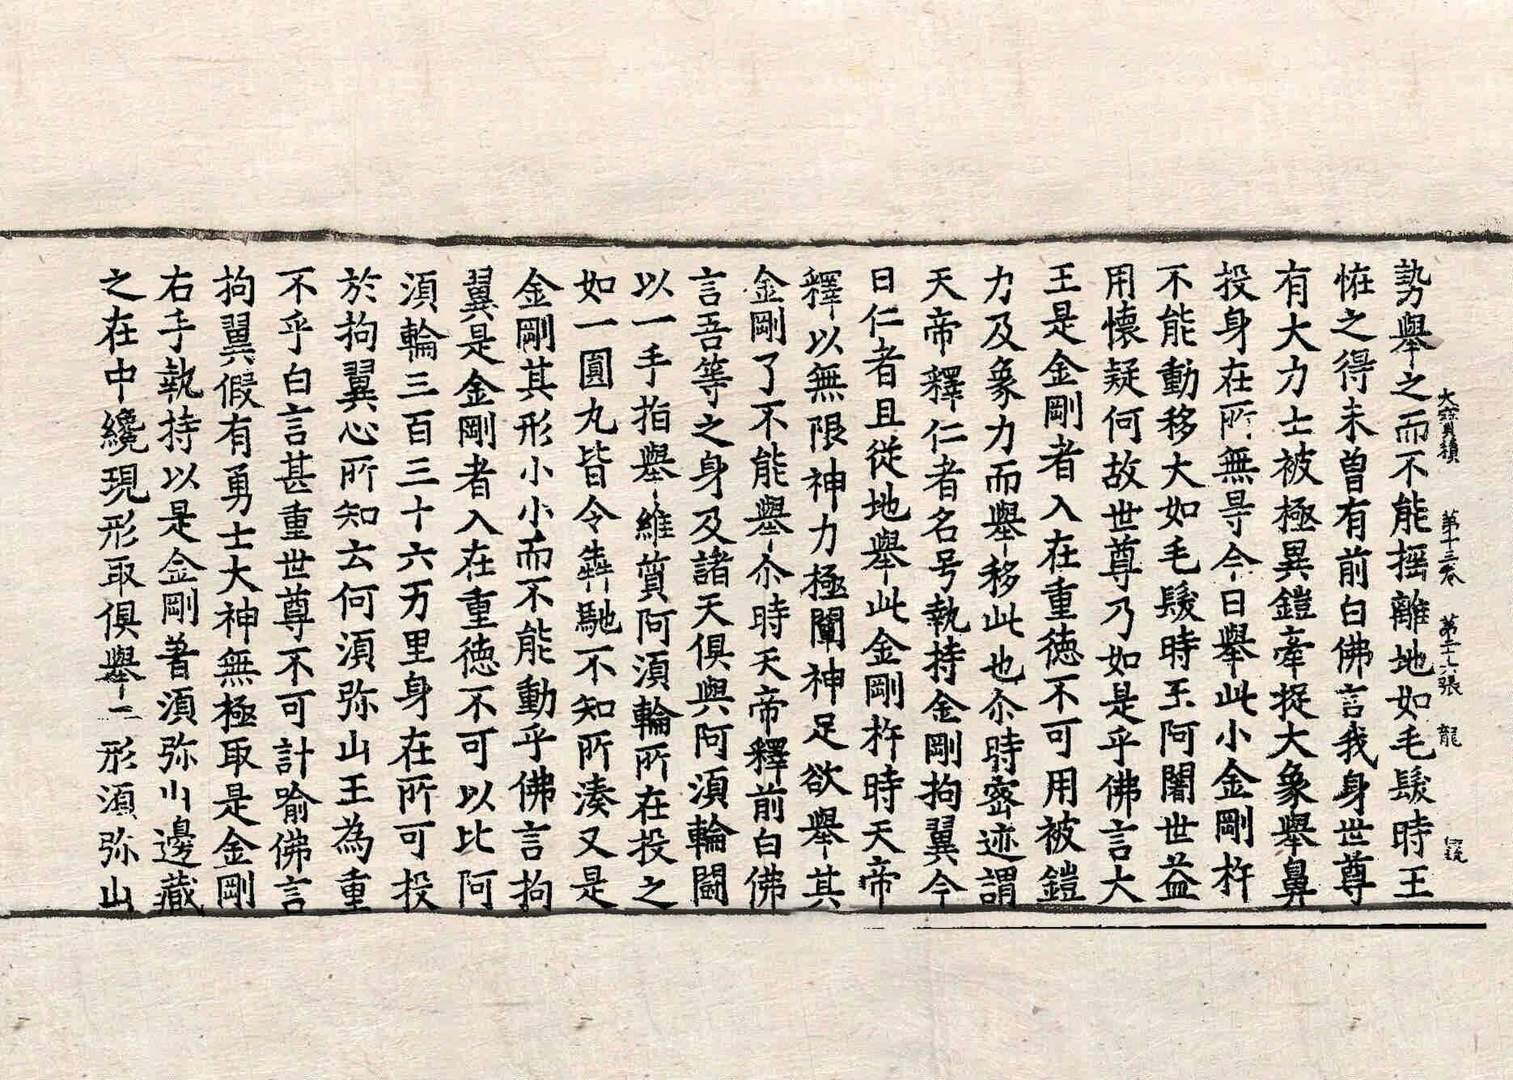 大寶積　第十三卷　第二十六張　龍
勢舉之而不能搖離地如毛髮時王
恠之得未曾有前白佛言我身世尊
有大力士被極異鎧牽捉大象舉鼻
投身在所無㝵今日舉此小金剛杵
不能動移大如毛髮時王阿闍世益
用懷疑何故世尊乃如是乎佛言大
王是金剛者入在重徳不可用被鎧
力及象力而舉移此也尒時密迹謂
天帝釋仁者名号執持金剛拘翼今
日仁者且從地舉此金剛杵時天帝
釋以無限神力極闡神足欲舉其
金剛了不能舉尒時天帝釋前白佛
言吾等之身及諸天俱與阿湏輪鬪
以一手指舉維質阿湏輪所在投之
如一圓丸皆令犇馳不知所湊又是
金剛其形小小而不能動乎佛言拘
翼是金剛者入在重徳不可以比阿
湏輪三百三十六万里身在所可投
於拘翼心所知云何湏弥山王為重
不乎白言甚重世尊不可計喻佛言
拘翼假有勇士大神無極取是金剛
右手執持以是金剛著湏弥山邊藏
之在中纔現形取俱舉二形湏弥山